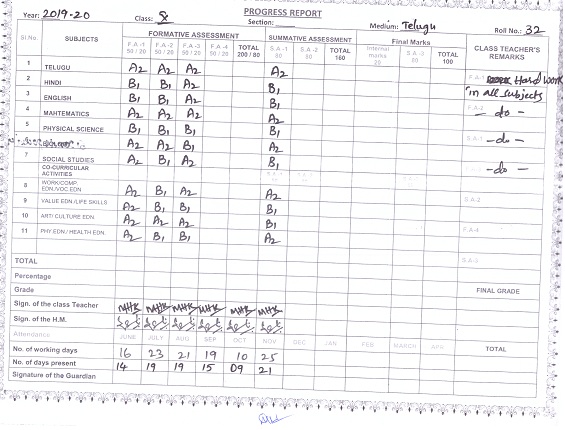 PROGRESS REPORT
Year: 2019-20 Class: 8 Section: Medium: Telugu Roll No.: 32
Sl.No. SUBJECTS FORMATIVE ASSESSMENT SUMMATIVE ASSESSMENT Final Marks CLASS TEACHER'S REMARKS
F.A-1 50 / 20 F.A-2 50 / 20 F.A-3 50 / 20 F.A-4 50 / 20 TOTAL 200 / 80 S.A-1 80 S.A-2 80 TOTAL 160 Internal marks 20 S.A-3 80 TOTAL 100
1 TELUGU A2 A2 A2 A2
F.A-1 Hard work
2 HINDI B1 B1 A2 B1
in all subjects
3 ENGLISH B1 B1 A2 B1
F.A-2 - do -
4 MAHTEMATICS A2 A2 A2 A2
5 PHYSICAL SCIENCE B1 B1 B1 B1
S.A-1 - do -
A2 A2 B1 A2
7 SOCIAL STUDIES A2 B1 A2 B1
- do -
CO-CURRICULAR ACTIVITIES
8 WORK/COMP. EDN./VOC.EDN A2 B1 A2 A2
S.A-2
9 VALUE EDN./LIFE SKILLS A2 B1 B1 B1
10 ART/ CULTURE EDN. A2 A2 A2 B1
F.A-4
11 PHY.EDN./ HEALTH EDN. A2 B1 B1 A2
S.A-3
TOTAL
Percentage
Grade FINAL GRADE
Sign. of the class Teacher MHK MHK MHK MHK MHK MHK
Sign. of the H.M.
Attendance JUNE JULY AUG SEP OCT NOV DEC JAN FEB MARCH APR TOTAL
No. of working days 16 23 21 19 10 25
No. of days present 14 19 19 15 09 21
Signature of the Guardian